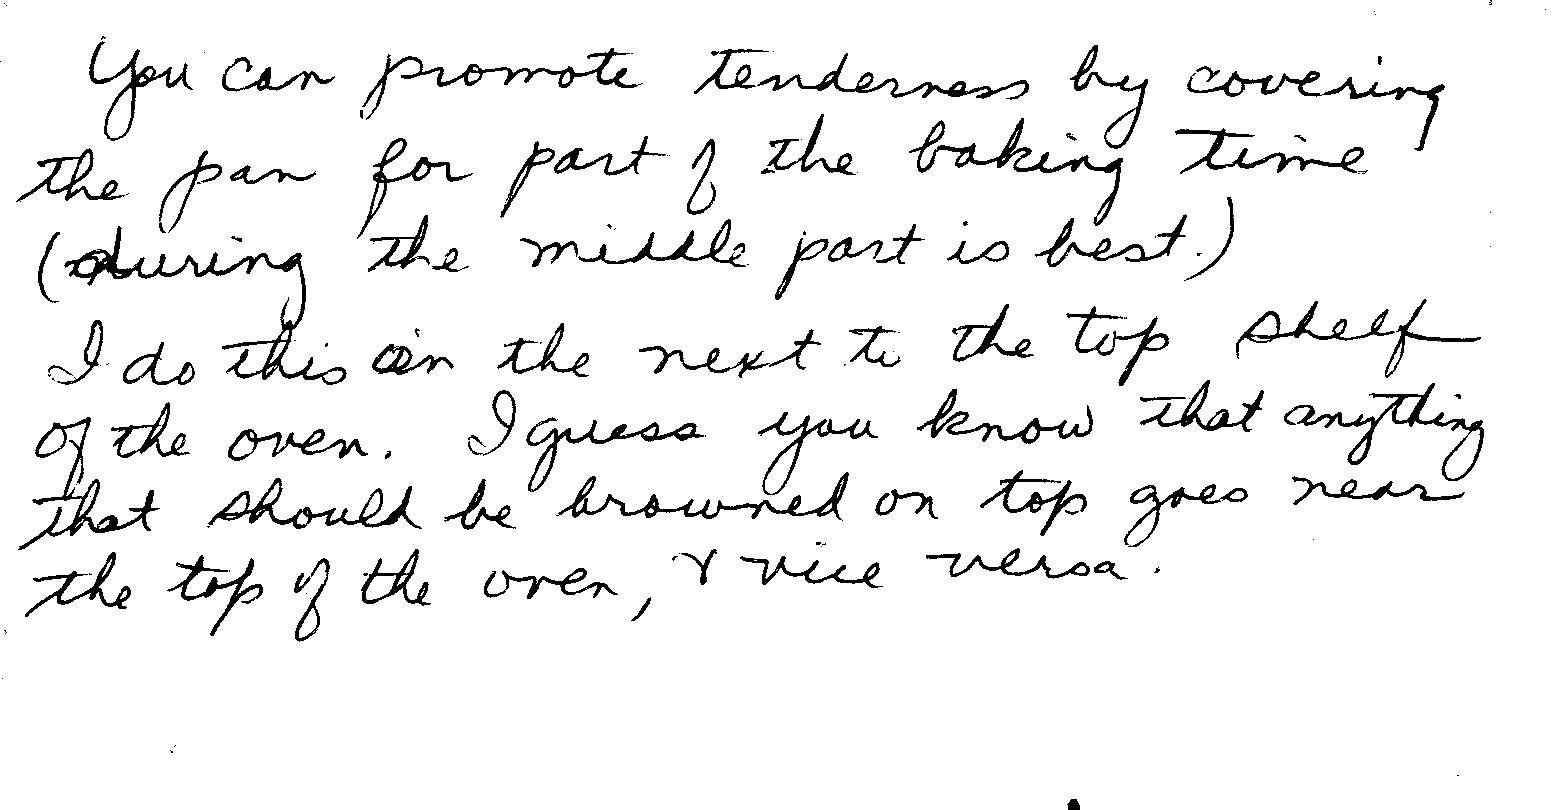 You can promote tenderness by covering
the pan for part of the baking time
(during the middle part is best.)
I do this in the next to the top shelf
of the oven. I guess you know that anything
that should be browned on top goes near
the top of the oven, & vice versa.